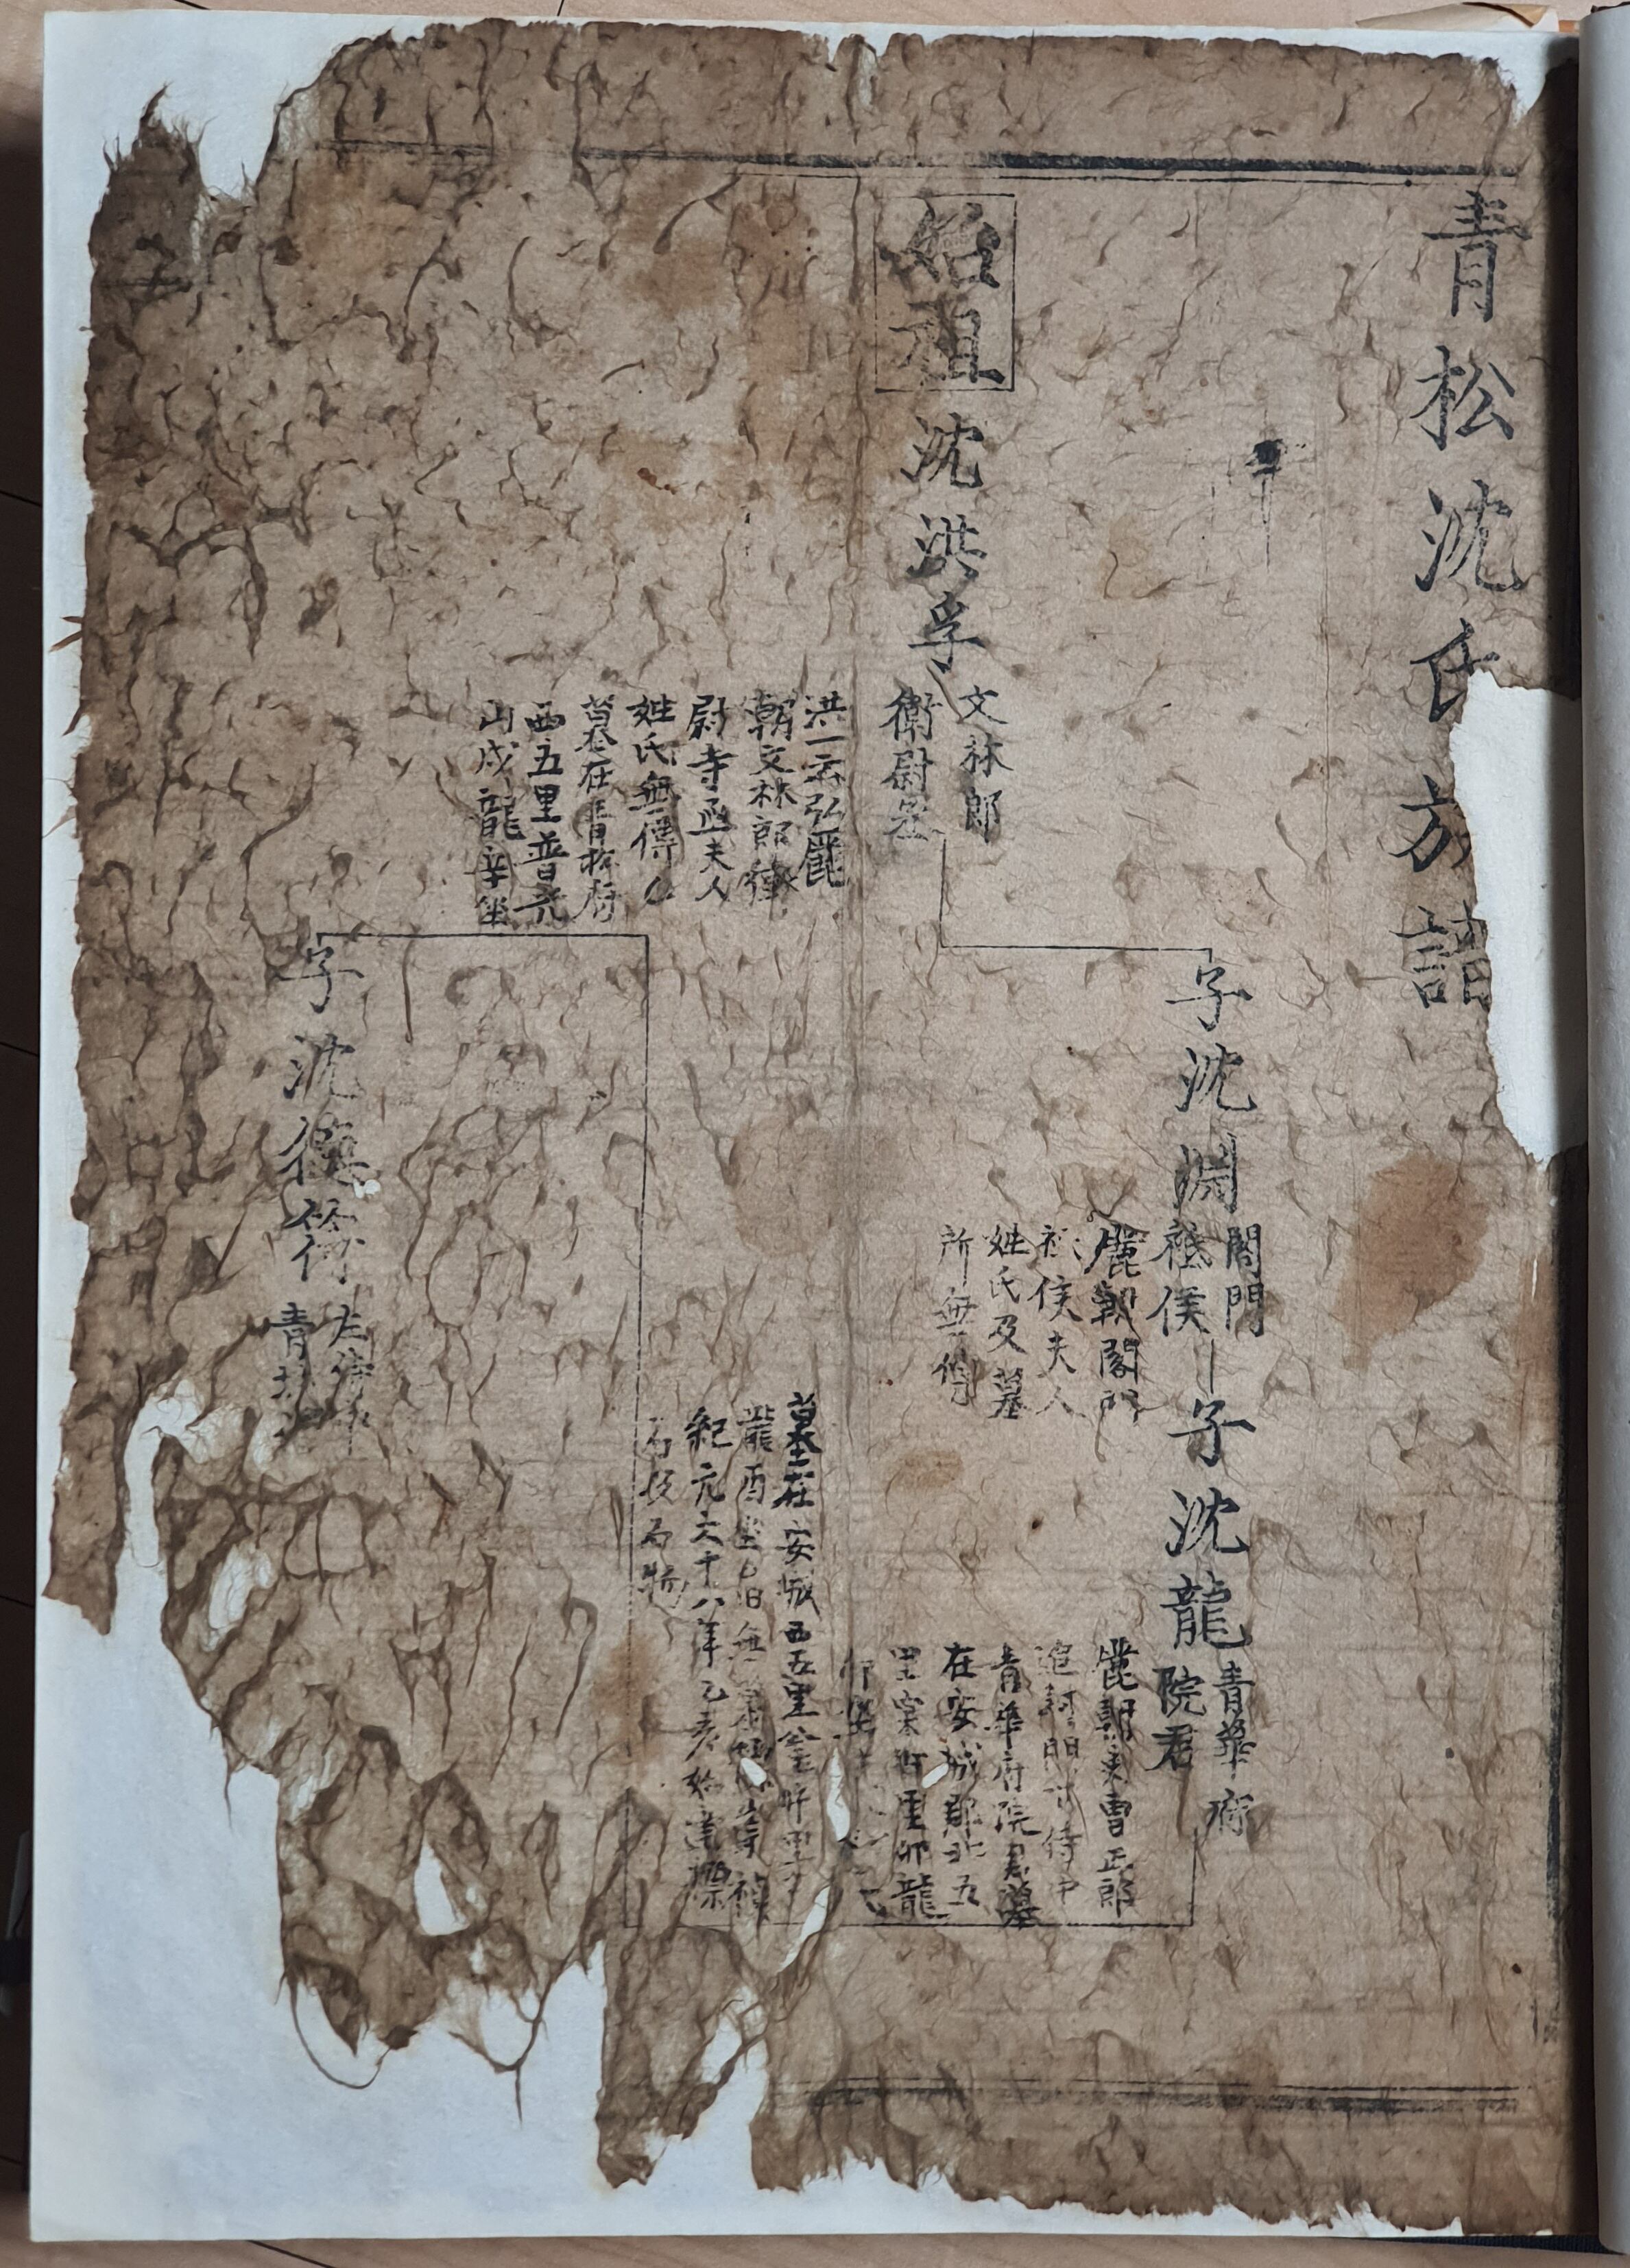 青松沈氏族譜
始祖
沈洪孚
文林郎
衛尉丞
洪一云弘麗
朝文林郎衛
尉寺丞夫人
姓氏無傳公
墓在靑松府
西五里普光
山戌龍辛坐
子沈淵
閤門
祗侯
麗朝閤門
祗侯夫人
姓氏及墓
所無傳
子沈龍
青華府
院君
麗朝吏曹正郎
追封門下侍中
青華府院君墓
在安城郡北五
里寀 里卯龍
卯坐
墓在安城西五里
龍酉坐舊無
紀元六十八年乙亥始建標
石役石物
子沈德符
左侍中
青城